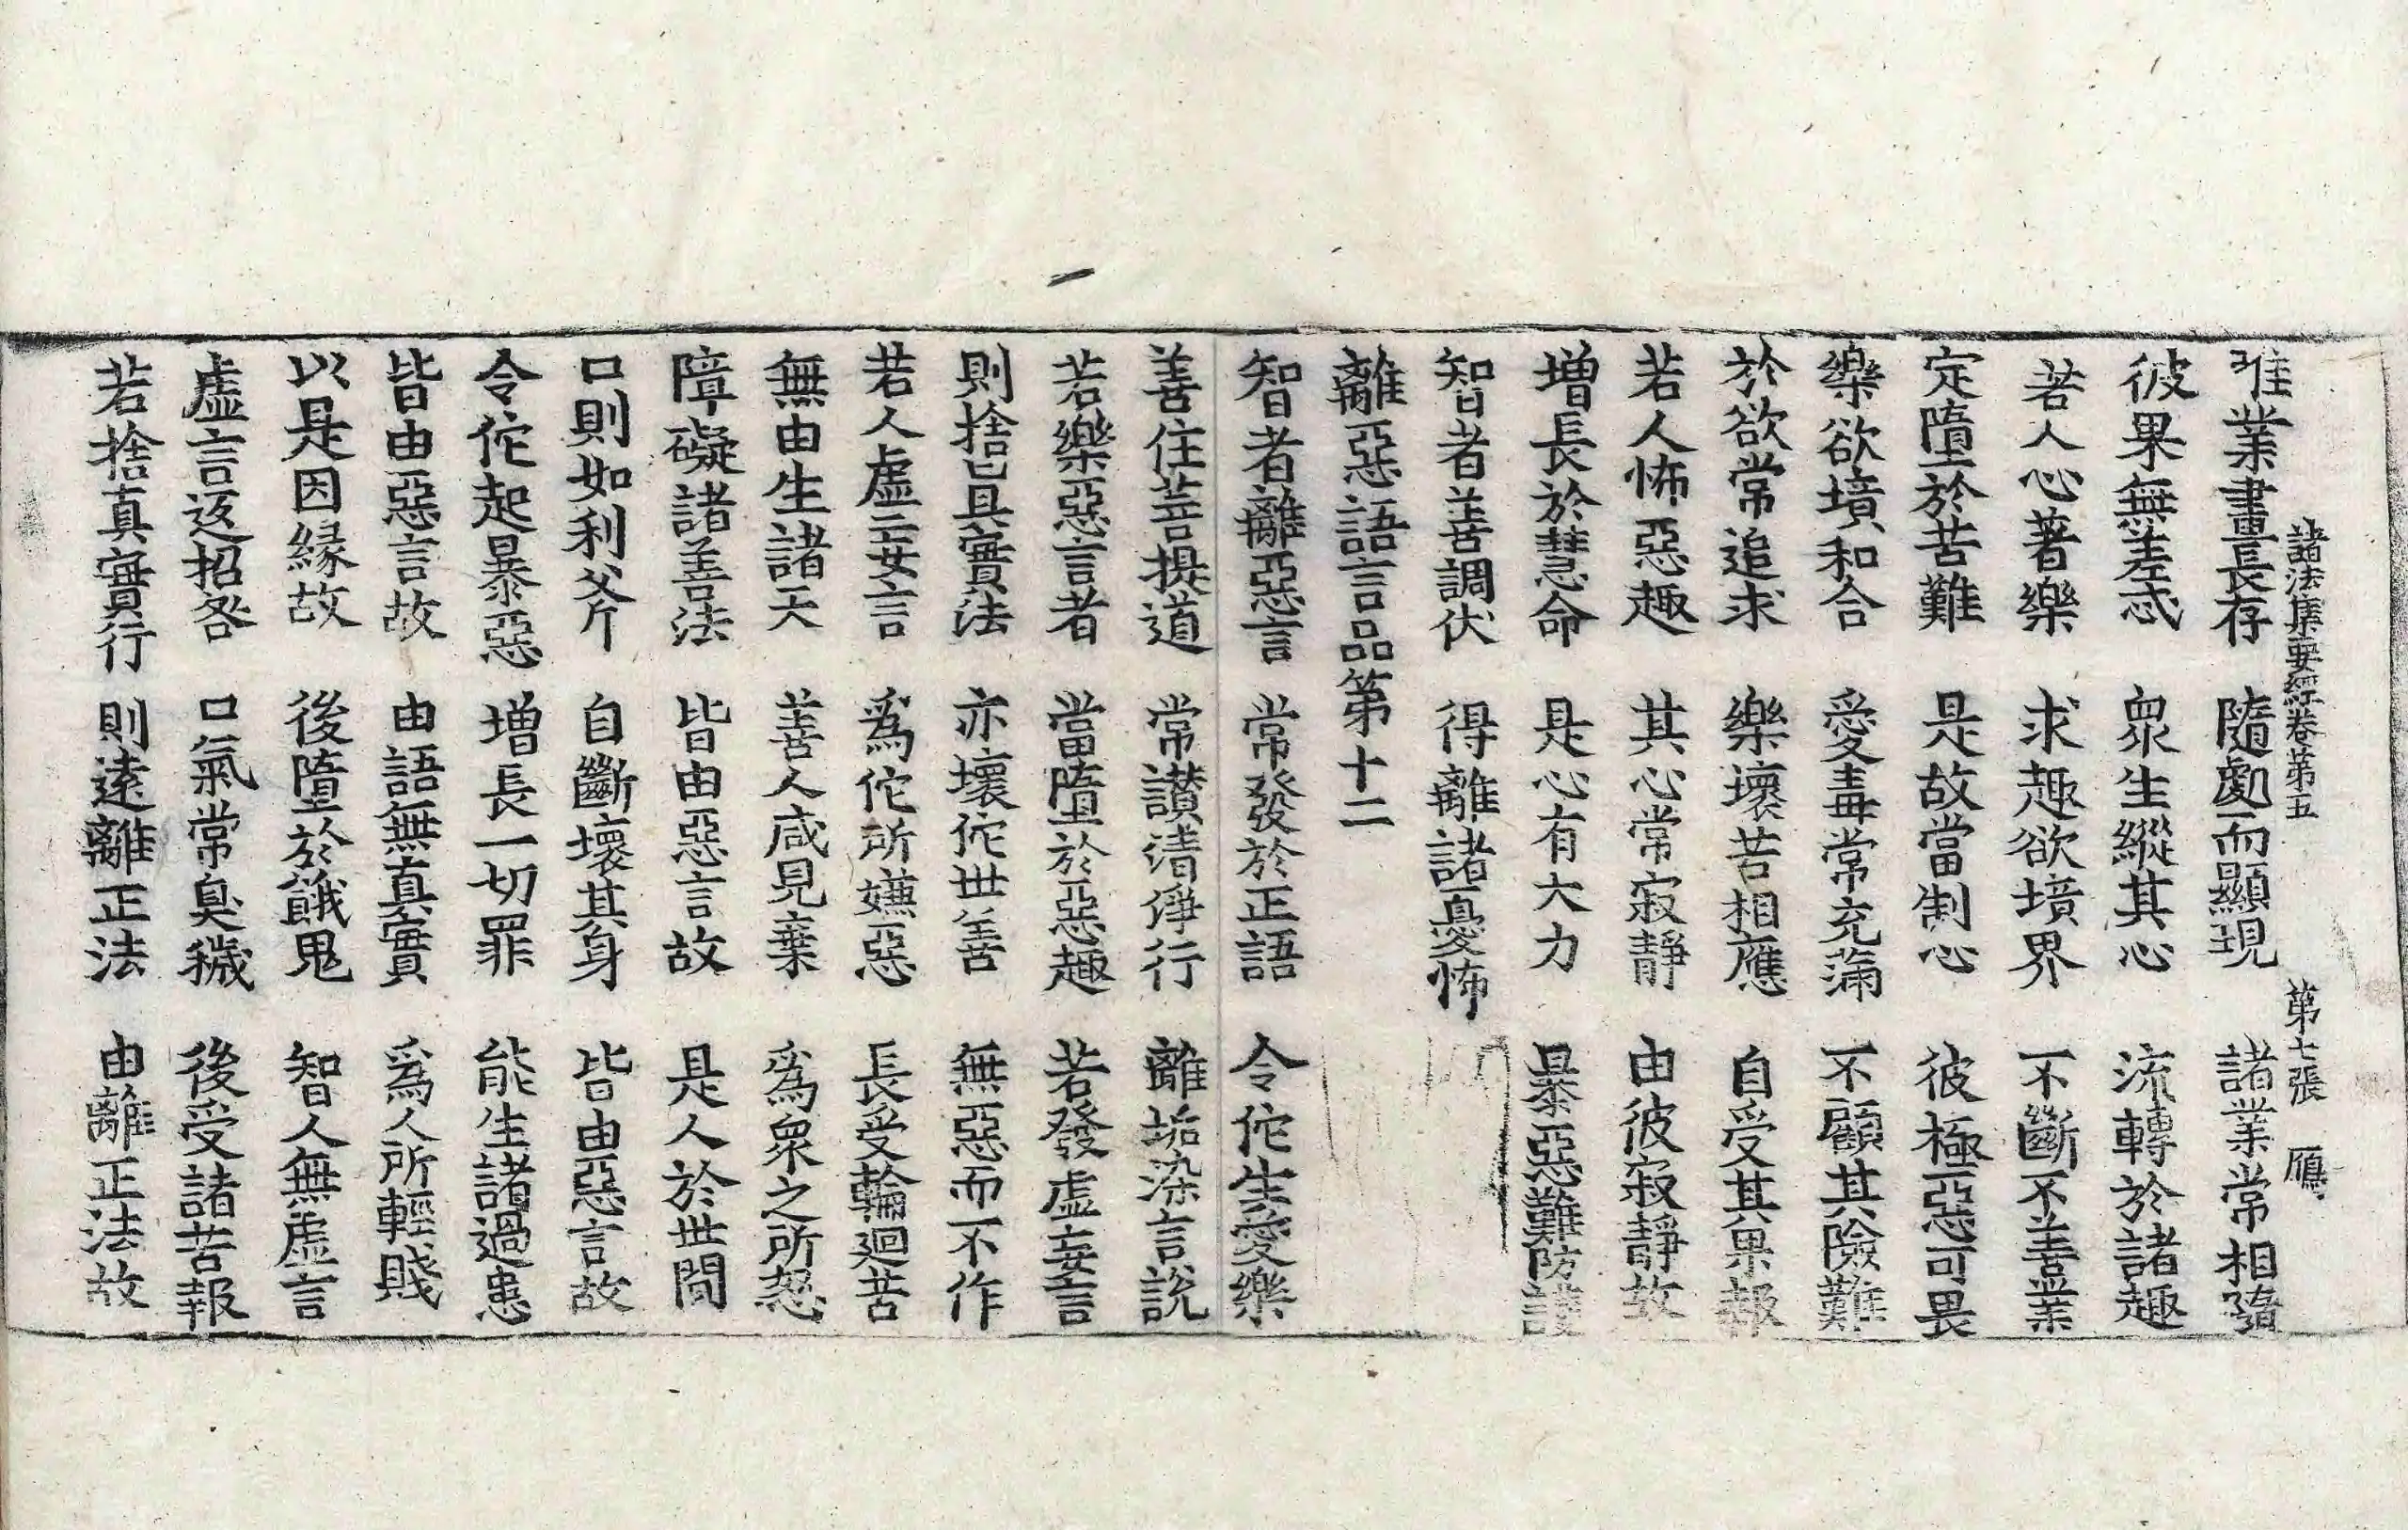 諸法集要經卷第五 第七張 鴈
唯業畫長存 隨處而顯現 諸業常相隨
彼果無差忒 衆生縱其心 流轉於諸趣
若人心著樂 求趣欲境界 不斷不善業
定墮於苦難 是故當制心 彼極惡可畏
樂欲境和合 愛毒常充滿 不顧其險難
於欲常追求 樂壞苦相應 自受其果報
若人怖惡趣 其心常寂靜 由彼寂靜故
增長於慧命 是心有大力 暴惡難防護
智者善調伏 得離諸憂怖
離惡語言品第十二
智者離惡言 常發於正語 令佗生愛樂
善住菩提道 常讃清淨行 離垢染言說
若樂惡言者 當墮於惡趣 若發虛妄言
則捨眞實法 亦壞佗世善 無惡而不作
若人虛妄言 爲佗所嫌惡 長受輪迴苦
無由生諸天 善人咸見棄 爲衆之所惡
障礙諸善法 皆由惡言故 是人於世間
口則如利斧 自斷壞其身 皆由惡言故
令佗起暴惡 增長一切罪 能生諸過患
皆由惡言故 由語無真實 爲人所輕賤
以是因緣故 後墮於餓鬼 智人無虛言
虛言返招咎 口氣常臭穢 後受諸苦報
若捨真實行 則遠離正法 由離正法故